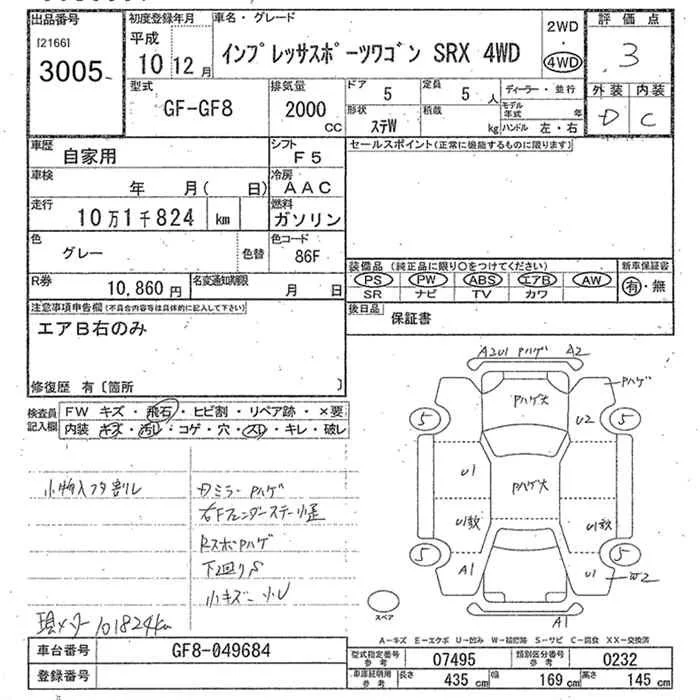 出品番号
[2166]
3005
初度登録年月
平成
10 12月
車名・グレード
インプレッサスポーツワゴン SRX 4WD
2WD
・
4WD
評価点
3
外装 内装
D C
型式
GF-GF8
排気量
2000
CC
ドア
5
定員
5 人
形状
ステW
積載
kg
ディーラー・並行
モデル年式 年
ハンドル 左・右
車歴
自家用
シフト
F5
車検
年 月( 日)
冷房
AAC
走行
10万1千824 km
燃料
ガソリン
色
グレー
色替
色コード
86F
R券
10,860 円
名変通知期限
月 日
セールスポイント(正常に機能するものに限ります)
装備品 (純正品に限り○をつけてください)
新車保証書
PS PW ABS エアB AW
有・無
SR ナビ TV カワ
後日品
保証書
注意事項申告欄(不具合内容等は具体的に記入して下さい)
エアB右のみ
修復歴 有〔箇所 〕
検査員記入欄
FW キズ・飛石・ヒビ割・リペア跡・×要
内装 キズ・汚れ・コゲ・穴・スレ・キレ・破レ
小物入フタ割レ
カミラーPハゲ
右Fフェンダーステー小歪
RスポPハゲ
下回りS
小キズ・小U
現メーター101824km
A2U1 Pハゲ A2
Pハゲ
Pハゲ大
5 5
U2
U1
Pハゲ大
U1数 U1数
5 5
A1 U1 W2
A1
スペア
A－キズ E－エクボ U－凹み W－補修跡 S－サビ C－腐食 XX－交換済
車台番号
GF8-049684
登録番号
型式指定番号 参考
07495
類別区分番号 参考
0232
車庫証明用 参考
長さ 435 cm
幅 169 cm
高さ 145 cm